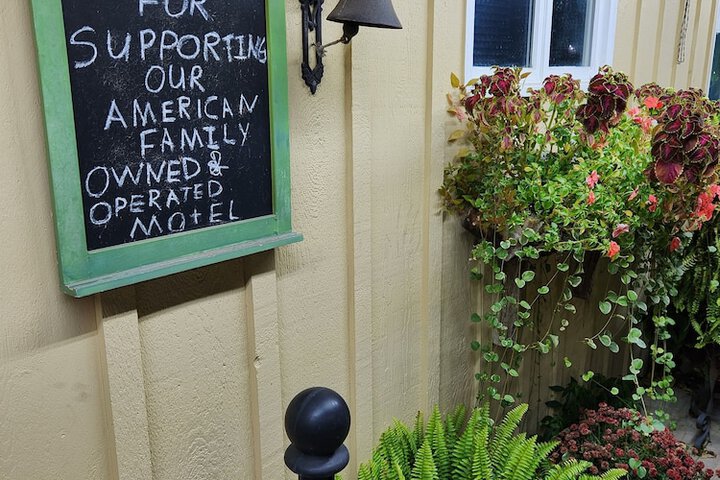 FOR
SUPPORTING
OUR
AMERICAN
FAMILY
OWNED &
OPERATED
MOTEL